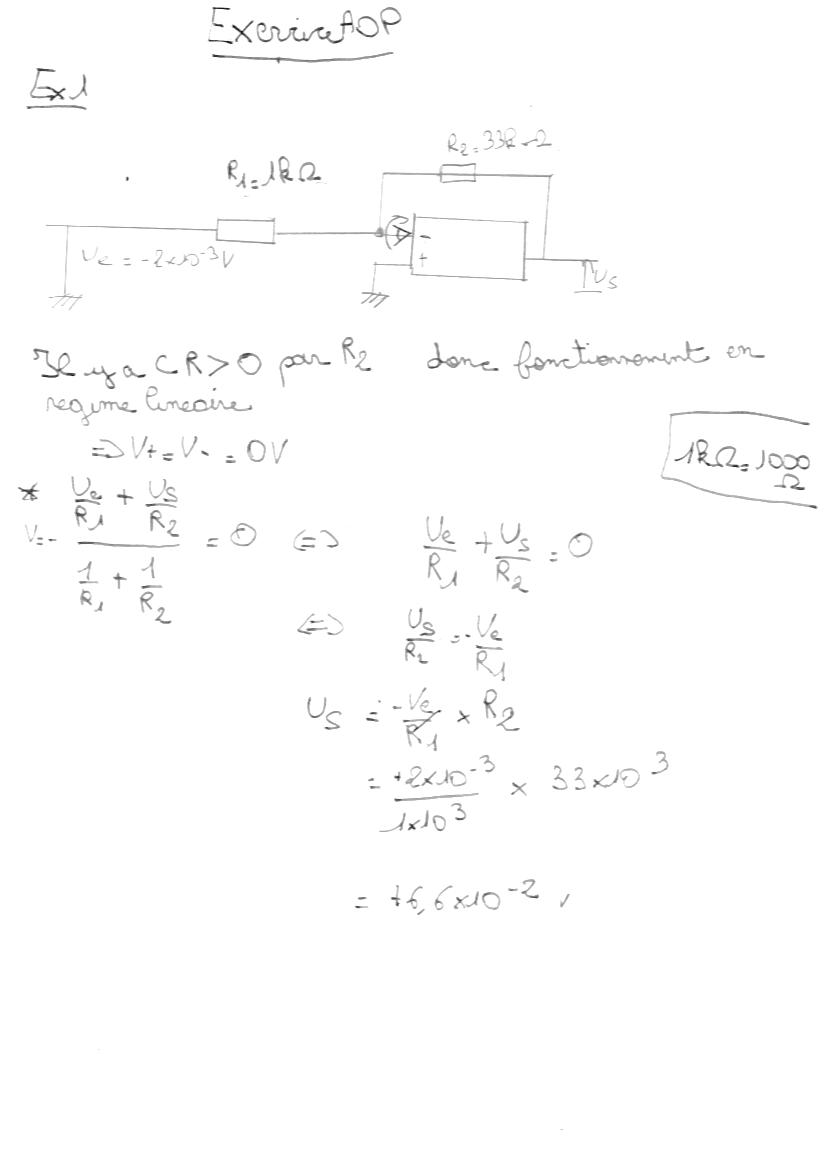 Exercice AOP
Ex1
R2 = 33kΩ
R1 = 1kΩ
Ve = -2×10⁻³V
-
+
Us
Il y a CR>0 par R2 donc fonctionnement en
régime linéaire
=> V+ = V- = 0V
1kΩ = 1000
Ω
* V- = (Ve/R1 + Us/R2) / (1/R1 + 1/R2) = 0 <=> Ve/R1 + Us/R2 = 0
<=> Us/R2 = -Ve/R1
Us = -Ve/R1 × R2
= +2×10⁻³/1×10³ × 33×10³
= +6,6×10⁻² V